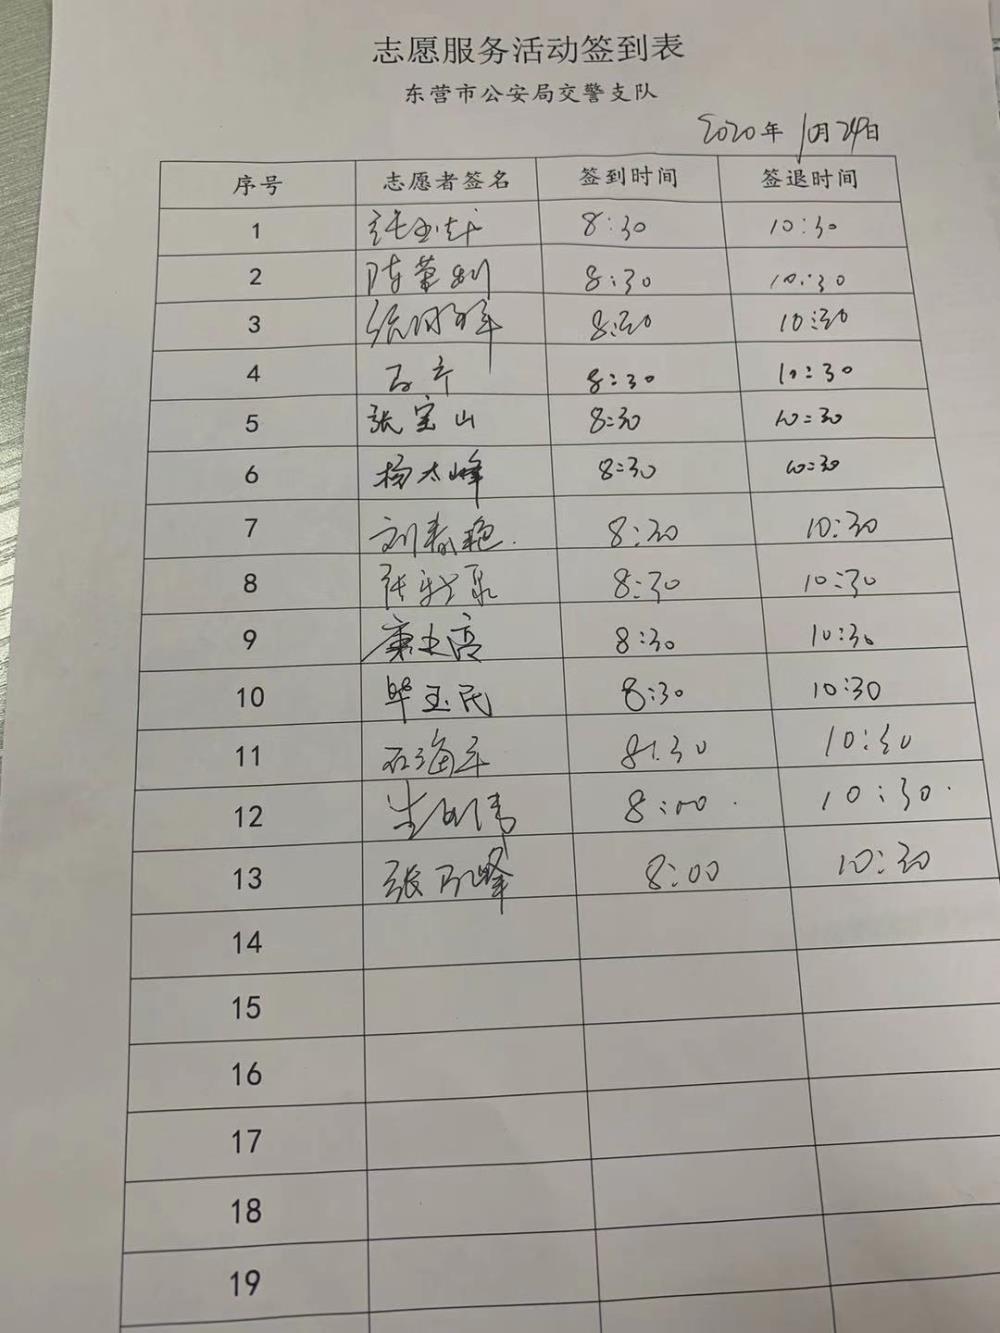 志愿服务活动签到表
东营市公安局交警支队
2020年10月24日
序号 志愿者签名 签到时间 签退时间
1 8:30 10:30
2 8:30 10:30
3 8:30 10:30
4 8:30 10:30
5 张宝山 8:30 10:30
6 杨太峰 8:30 10:30
7 刘春艳 8:30 10:30
8 张 8:30 10:30
9 8:30 10:30
10 毕玉民 8:30 10:30
11 石海军 8:30 10:30
12 8:00 10:30
13 张乃峰 8:00 10:30
14
15
16
17
18
19